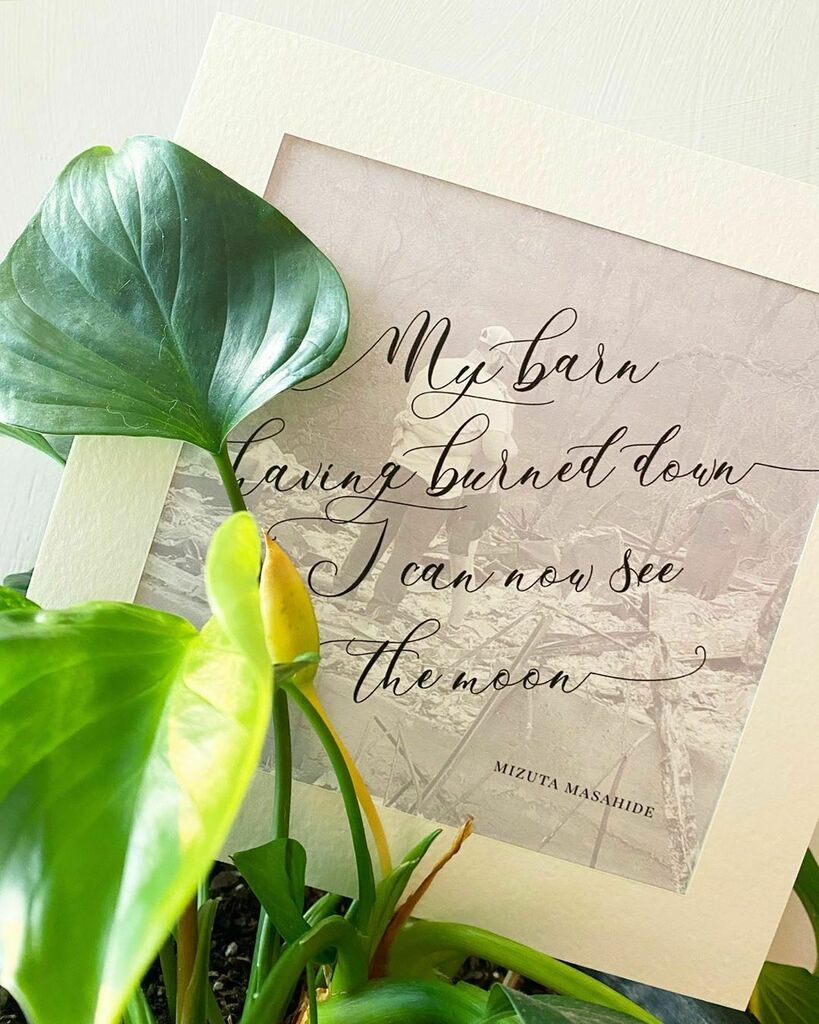 My barn
having burned down
I can now see
the moon
MIZUTA MASAHIDE